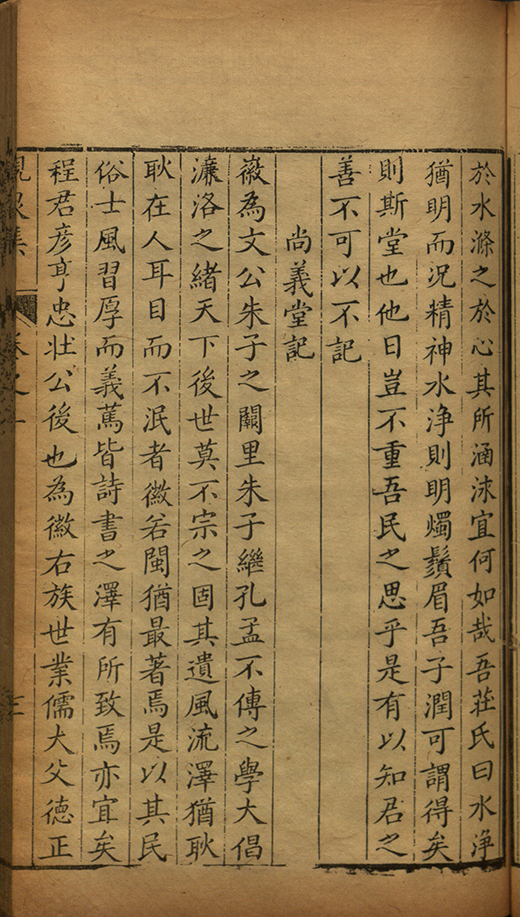 於水滌之於心其所涵泳宜何如哉吾莊氏曰水淨
猶明而況精神水淨則明燭鬚眉吾子潤可謂得矣
則斯堂也他日豈不重吾民之思乎是有以知君之
善不可以不記
尚義堂記
徽為文公朱子之闕里朱子繼孔孟不傳之學大倡
濂洛之緒天下後世莫不宗之固其遺風流澤猶耿
耿在人耳目而不泯者徽若閩猶最著焉是以其民
俗士風習厚而義篤皆詩書之澤有所致焉亦宜矣
程君彥亨忠壯公後也為徽右族世業儒大父德正
集 卷之